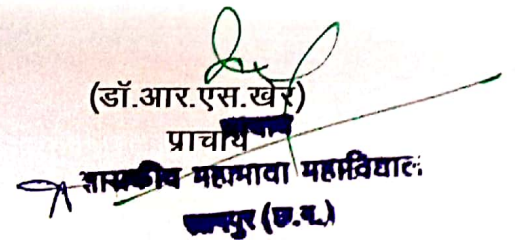 (डॉ.आर.एस.खेर)
प्राचार्य
प्राचार्य
शासकीय महामाया महाविद्यालय
(छ.ग.)